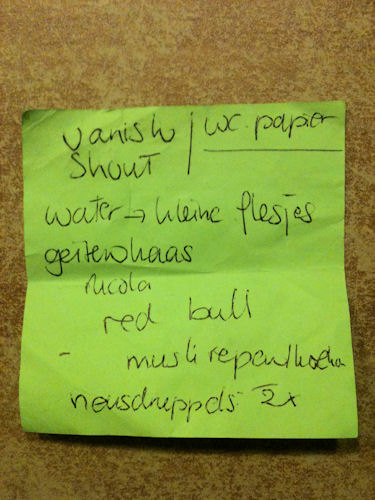 vanish | wc. papier
Shout
water → kleine flesjes
geitenkaas
- ricola
red bull
- musli repen
neusdruppels 2x